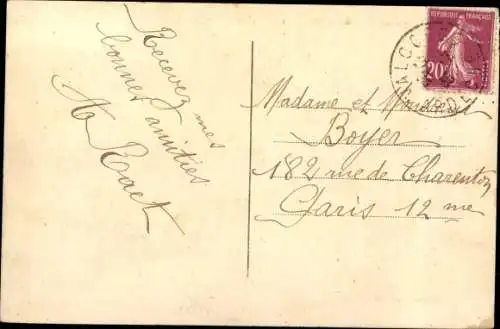 Recevez mes
bonnes amitiés
Madame et Monsieur
Boyer
182 rue de Charenton
Paris 12me
REPUBLIQUE FRANÇAISE
20c